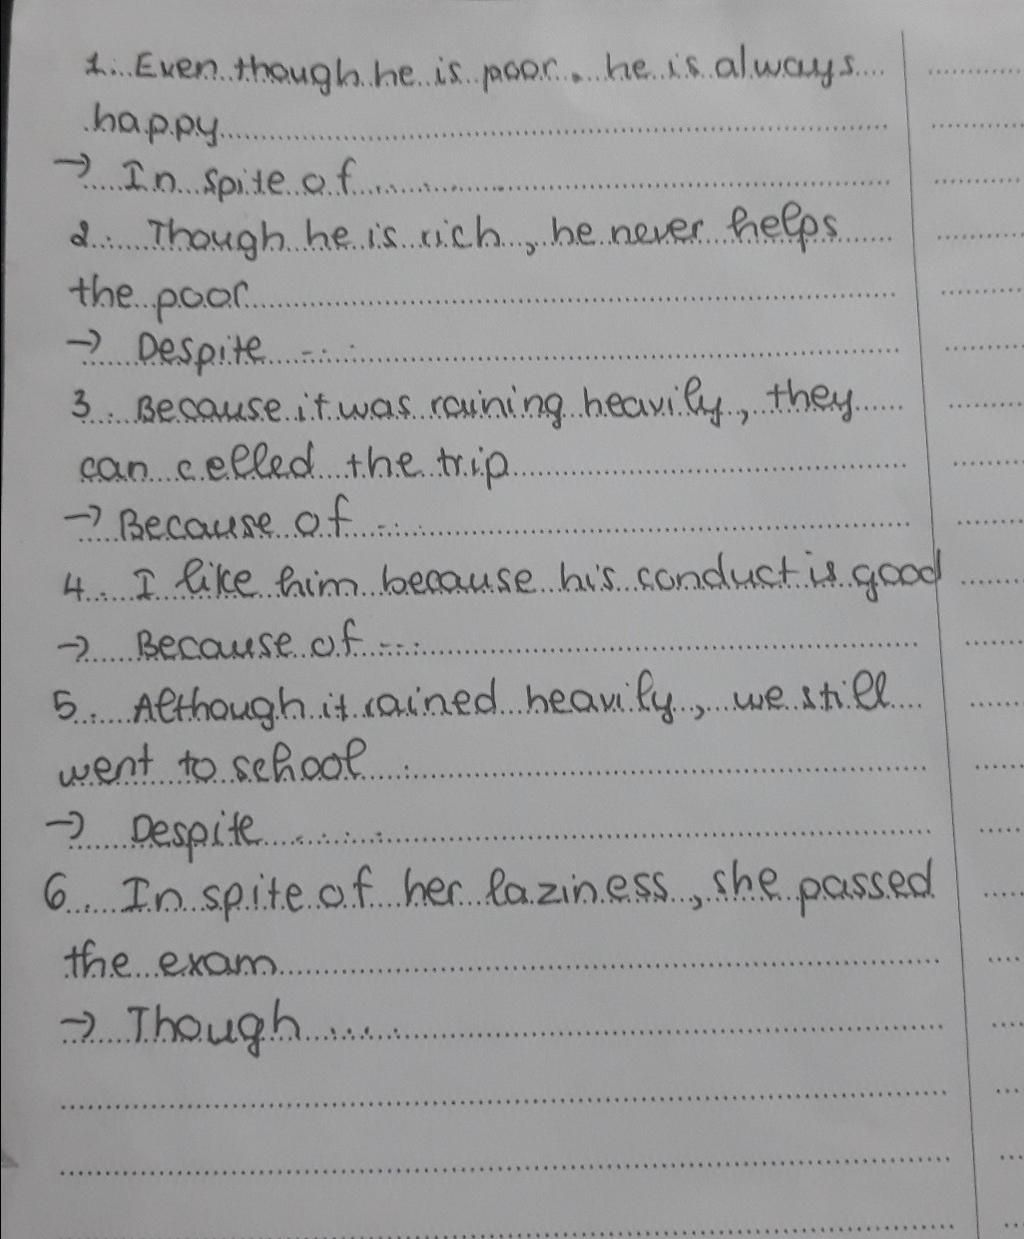 1. Even though he is poor, he is always
happy
→ In spite of ....
2. Though he is rich, he never helps
the poor
→ Despite ....
3. Because it was raining heavily, they
can celled the trip
→ Because of ....
4. I like him because his conduct is good
→ Because of ....
5. Although it rained heavily, we still
went to school.
→ Despite ....
6. In spite of her laziness, she passed
the exam
→ Though ....